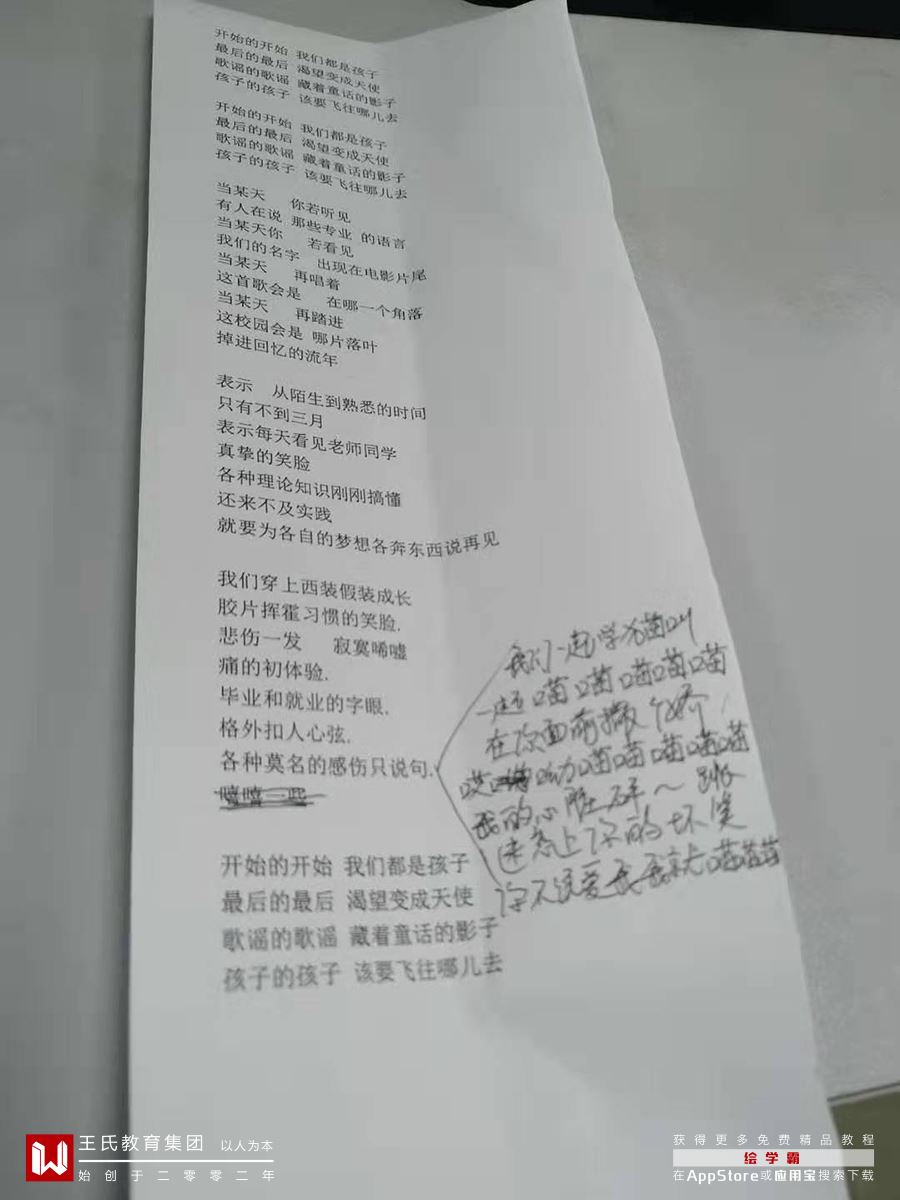 开始的开始 我们都是孩子
最后的最后 渴望变成天使
歌谣的歌谣 藏着童话的影子
孩子的孩子 该要飞往哪儿去
开始的开始 我们都是孩子
最后的最后 渴望变成天使
歌谣的歌谣 藏着童话的影子
孩子的孩子 该要飞往哪儿去
当某天 你若听见
有人在说 那些专业 的语言
当某天你 若看见
我们的名字 出现在电影片尾
当某天 再唱着
这首歌会是 在哪一个角落
当某天 再踏进
这校园会是 哪片落叶
掉进回忆的流年
表示 从陌生到熟悉的时间
只有不到三月
表示每天看见老师同学
真挚的笑脸
各种理论知识刚刚搞懂
还来不及实践
就要为各自的梦想各奔东西说再见
我们穿上西装假装成长
胶片挥霍习惯的笑脸.
悲伤一发 寂寞唏嘘
痛的初体验.
毕业和就业的字眼.
格外扣人心弦.
各种莫名的感伤只说句.
嘻嘻一些
我们一起学猫叫
一起喵喵喵喵喵
在你面前撒个娇
哎呦喵喵喵喵喵
我的心脏砰~跳
迷恋上你的坏笑
你不说爱我我就喵喵喵
开始的开始 我们都是孩子
最后的最后 渴望变成天使
歌谣的歌谣 藏着童话的影子
孩子的孩子 该要飞往哪儿去
王氏教育集团 以人为本
始创于二零零二年
获得更多免费精品教程
绘学霸
在AppStore或应用宝搜索下载